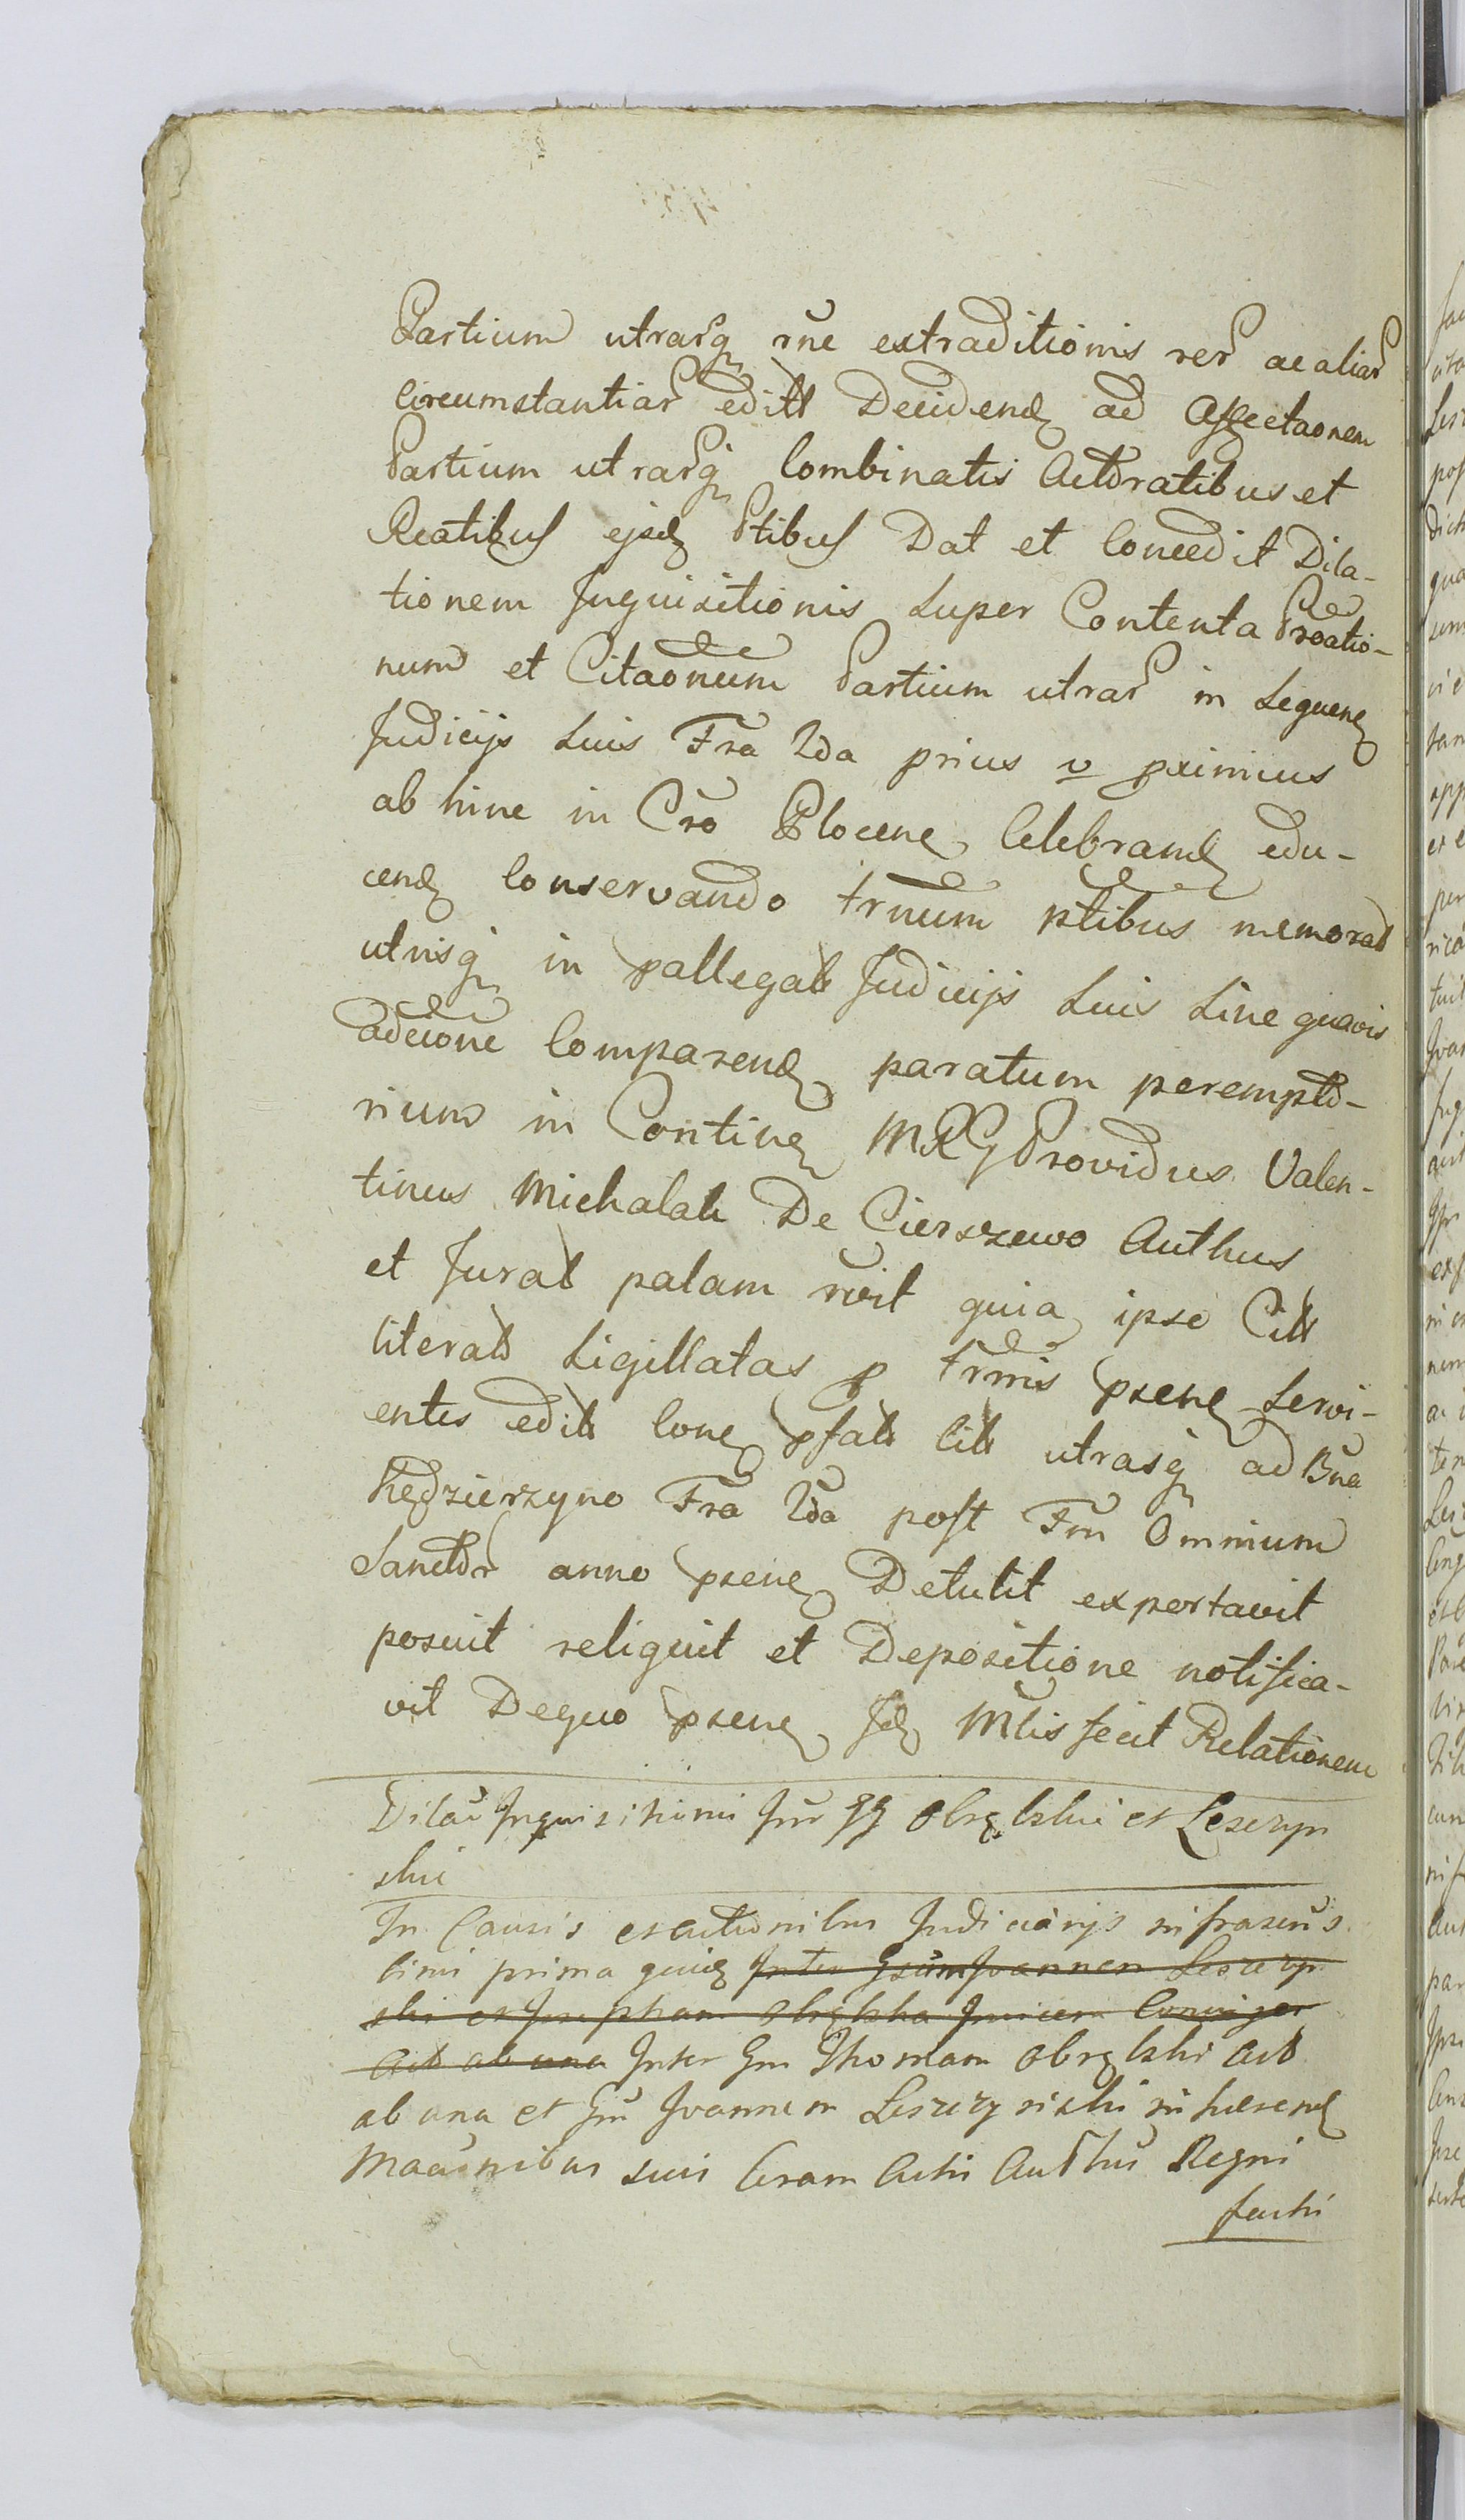 Partium utrarq rne extraditionis rer ac aliar
circumstantiar editt Decidend ad Affectaonem
Partium utrarq Combinatis Actoratibus et
Reatibus ejsd Ptibus Dat et Concedit Dila-
tionem Inquisitionis Super Contenta Proatio-
num et Citaonum Partium utrar in Sequen
Judicijs Suis Fra 2da prius v pximius
ab hinc in Cro Plocen Celebrand edu-
cend Conservando trnum ptibus memorat
utrisq in pallegat Judicijs Suis Sine quavis
adcione Comparend paratum perempto-
rium in Contin MRG Providus Valen-
tinus Michalak De Cierszewo Authus
et Jurat palam rvit quia ipse Citt
literat Sigillatas p trmis psen Servi-
entes edit Con pfat Citt utrasq ad Bna
Kędzierzyno Fra 2da post Fm Omnium
Sanctor anno psen Detulit exportavit
posuit reliquit et Depositione notifica-
vit Dequo psen Jd Mlis fecit Relationem
Dilao Inquisitionis Inr GG Obrębski et Leszczyn
ski
In Causis et actionibus Judiciarijs infrascris
Citni prima quid Inter Gsum Joannem Leszczyn
ski et Josepham Obrębska
Act ab una Inter Gm Thomam Obrębski Act
ab una et Gm Joannem Leszczynski inhaerend
suis Coram Actis Authus Regni
facti